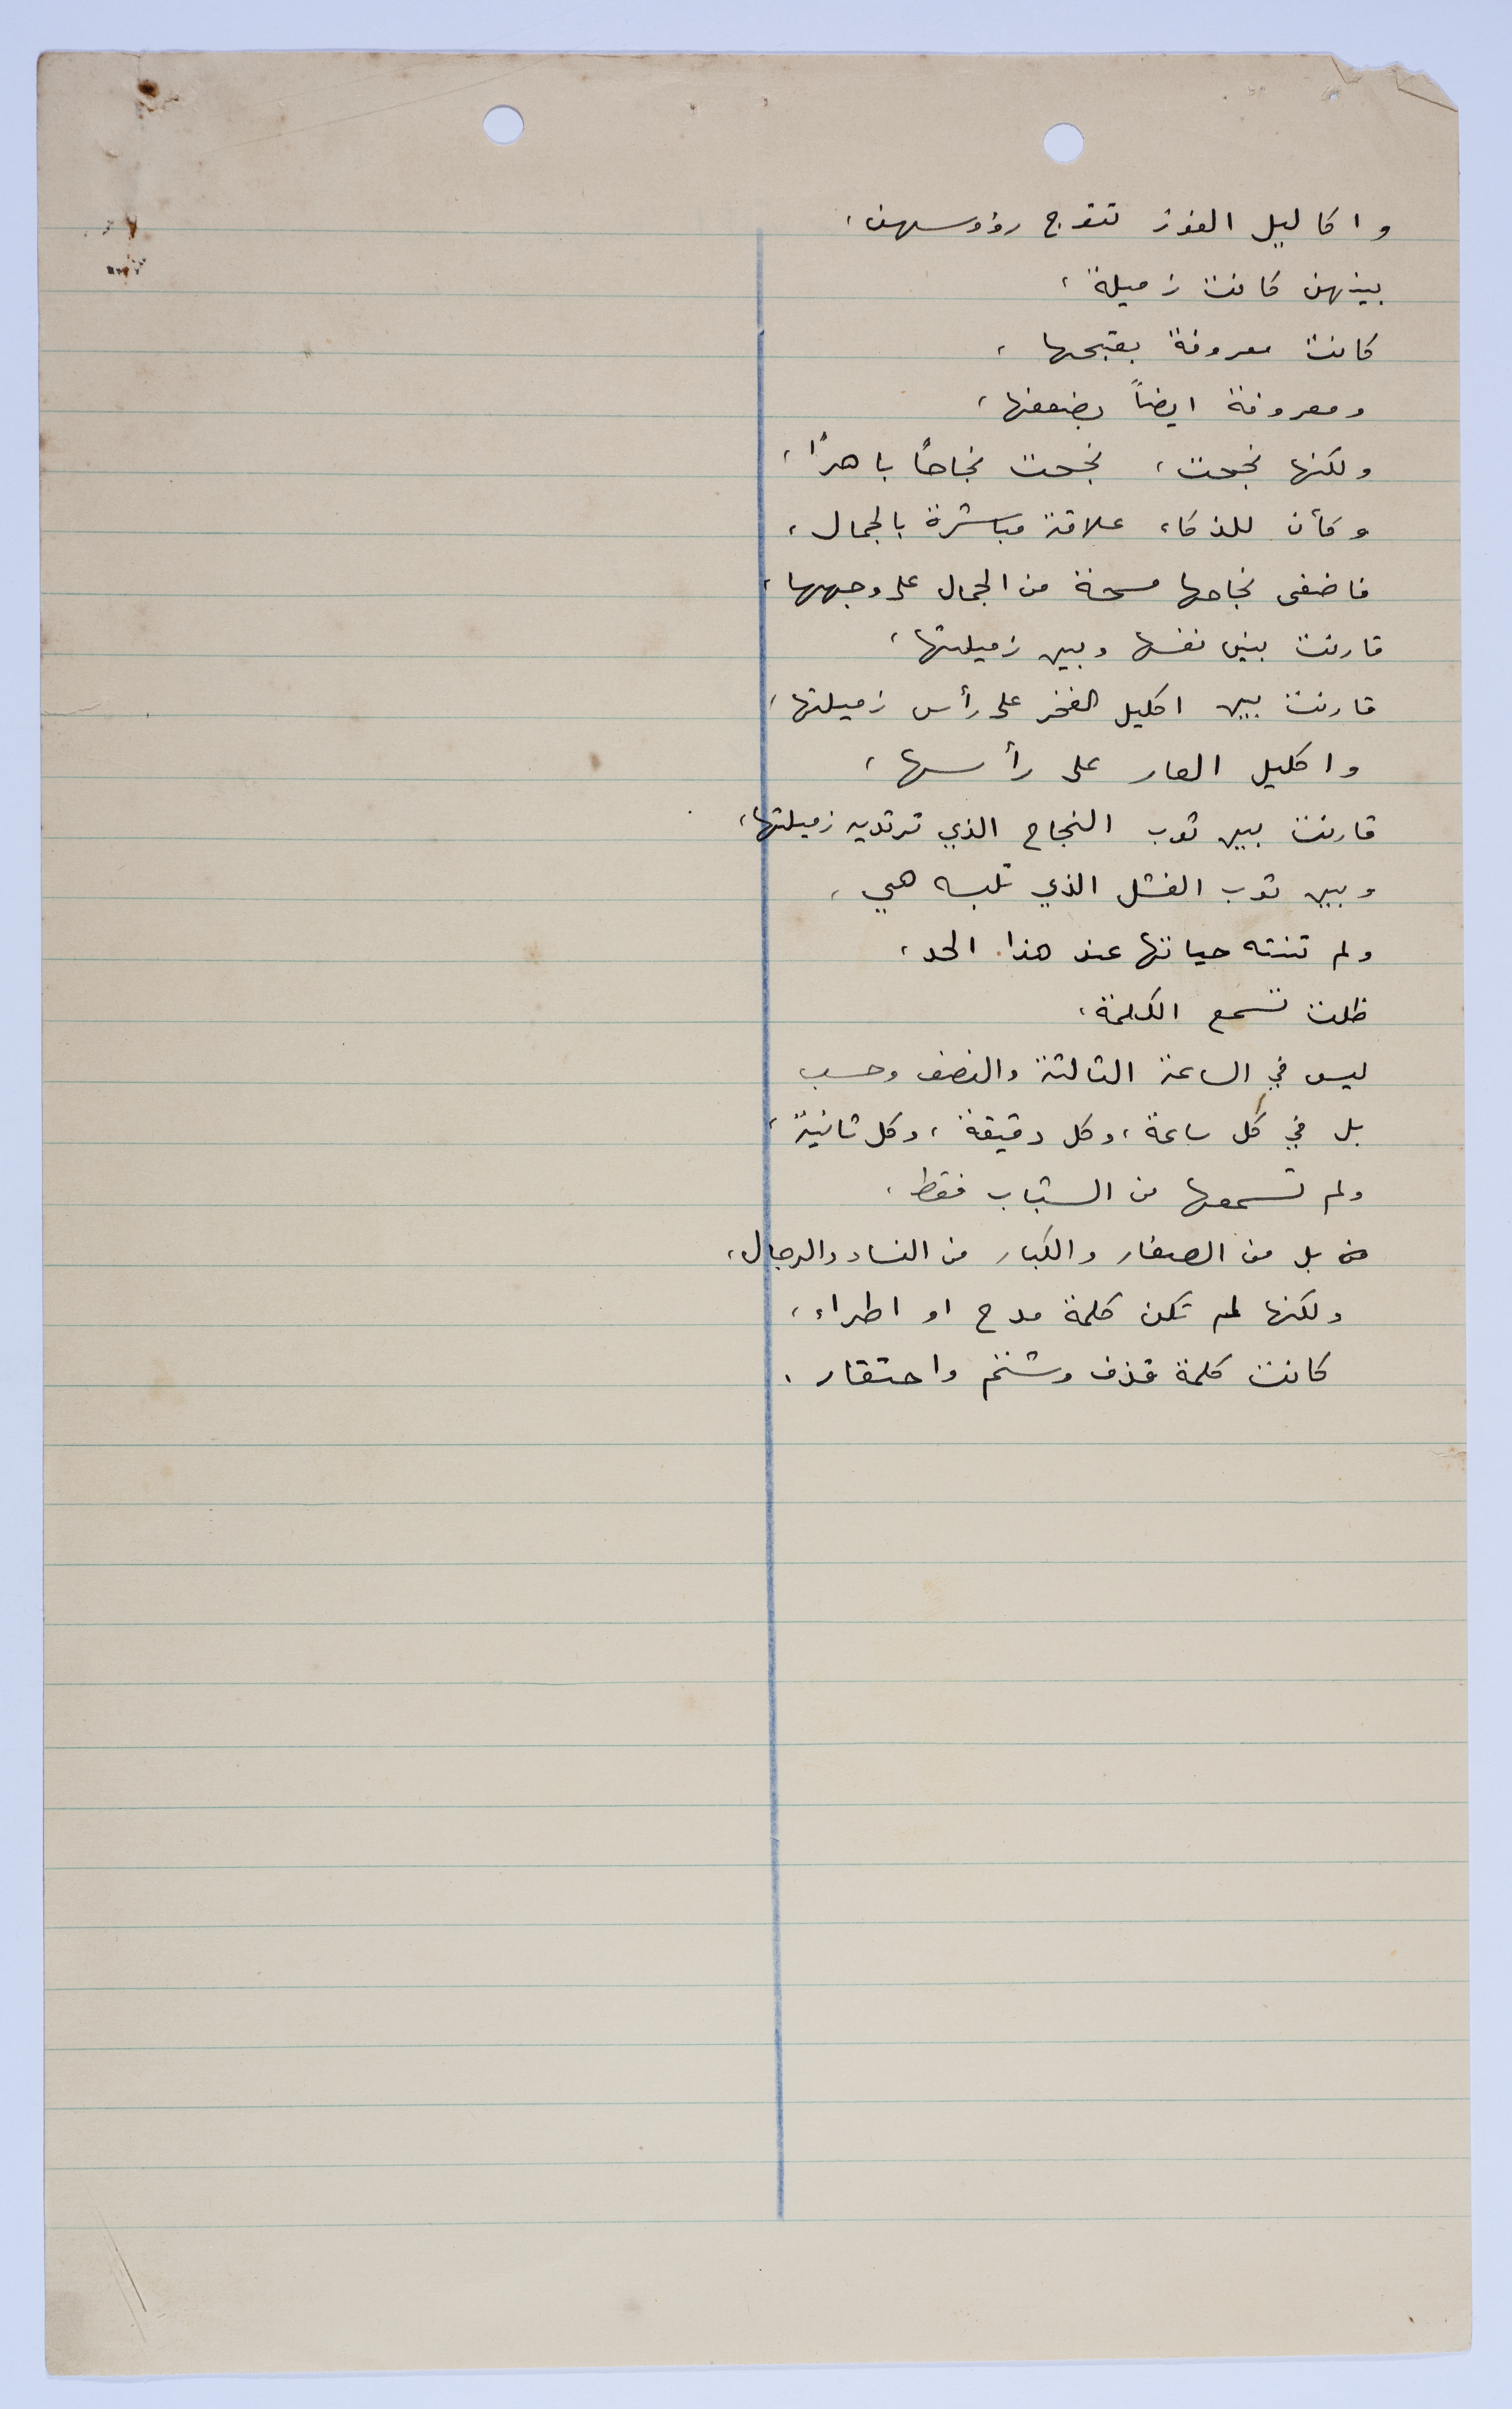 واكاليل الفوز تتوج رؤوسهن،
بينهن كانت زميلة،
كانت معروفة بقبحها،
ومعروفة ايضاً بضعفها،
ولكنها نجحت، نجحت نجاحاً باهراً،
وكأن للذكاء علاقة مباشرة بالجمال،
فاضفى نجاحها مسحة من الجمال على وجهها،
قارنت بين نفسها وبين زميلتها،
قارنت بين اكليل الفخر على رأس زميلتها،
واكليل العار على رأسها،
قارنت بين ثوب النجاح الذي ترتديه زميلتها،
وبين ثوب الفشل الذي تلبسه هي،
ولم تنته حياتها عند هذا الحد،
ظلت تسمع الكلمة،
ليس في الساعة الثالثة والنصف وحسب
بل في كل ساعة، وكل دقيقة، وكل ثانية،
ولم تسمعها من الشباب فقط،
من بل من الصغار والكبار من النساء والرجال،
ولكنها لم تكن كلمة مدح او اطراء،
كانت كلمة قذف وشتم واحتقار.